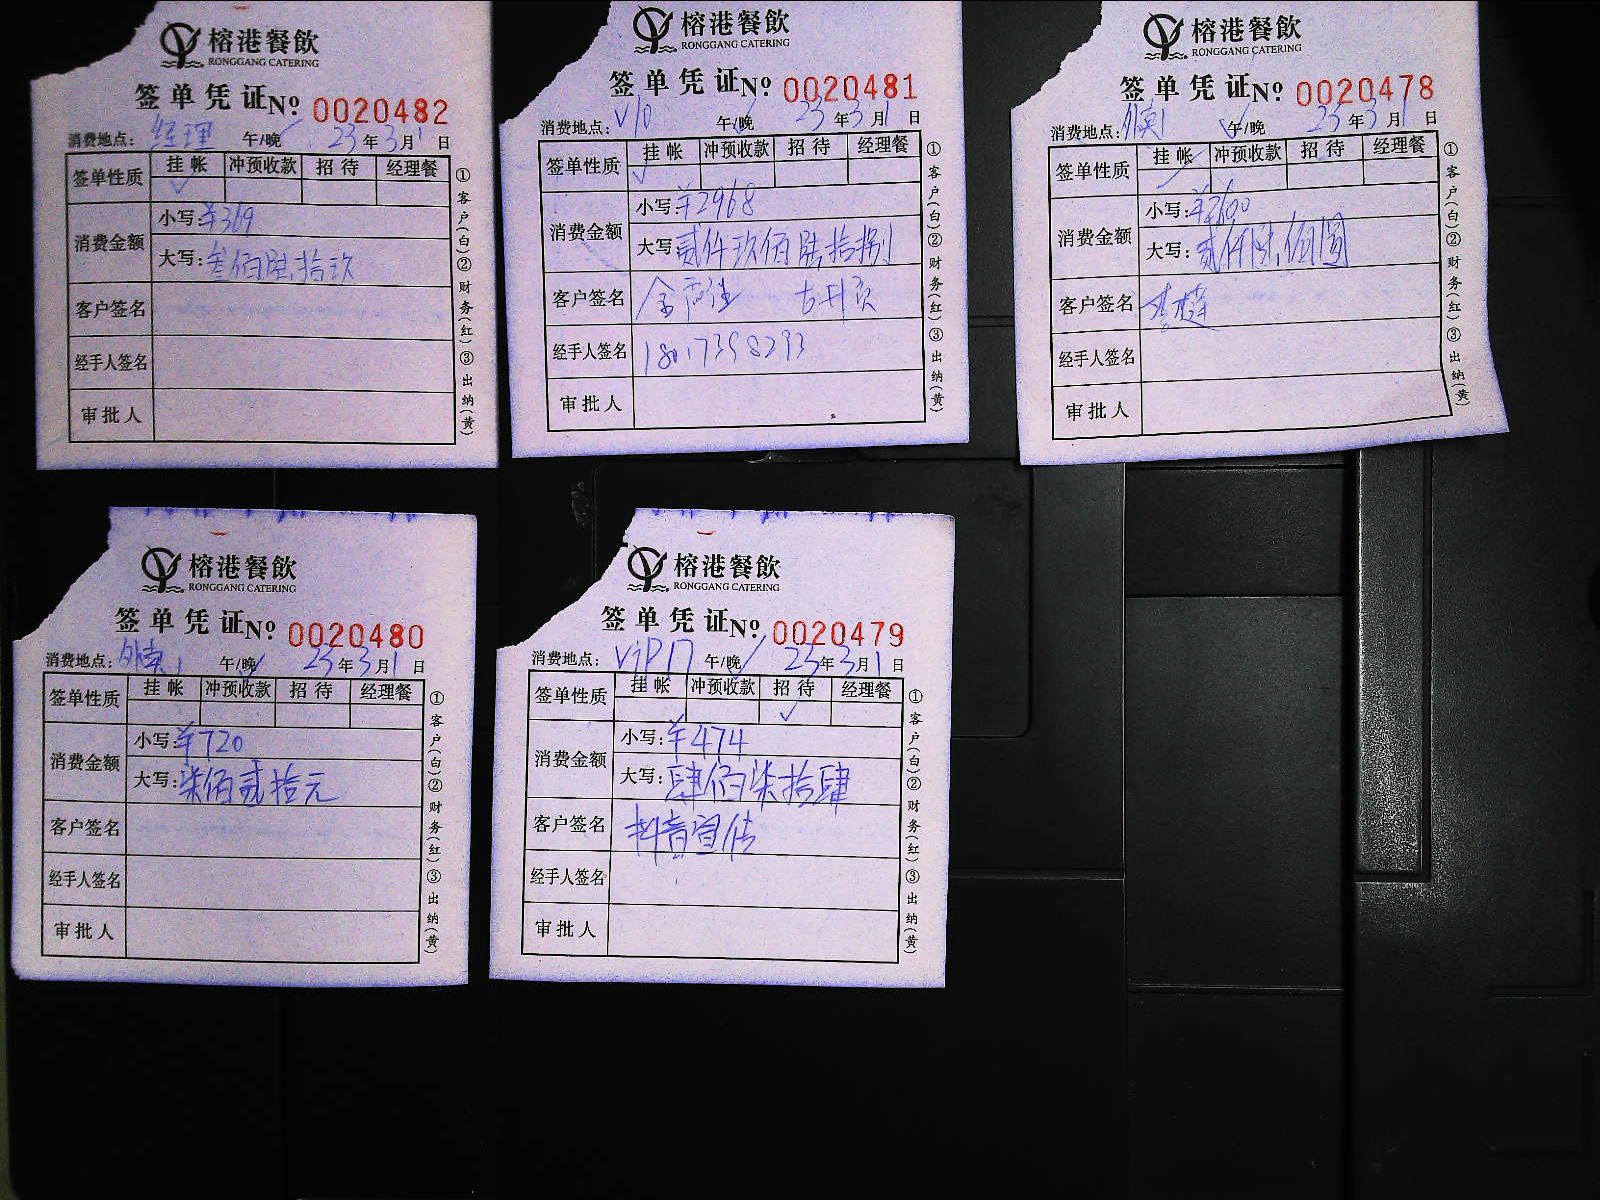 榕港餐飲
RONGGANG CATERING
签单凭证 No 0020482
消费地点: 经理 午/晚 23年3月1日
签单性质 挂帐 冲预收款 招待 经理餐
✓
消费金额 小写:¥369
大写:叁佰陆拾玖
客户签名
经手人签名
审批人
①客户(白)②财务(红)③出纳(黄)
榕港餐飲
RONGGANG CATERING
签单凭证 No 0020481
消费地点: V10 午/晚 23年3月1日
签单性质 挂帐 冲预收款 招待 经理餐
✓
消费金额 小写:¥2968
大写:贰仟玖佰陆拾捌
客户签名
经手人签名 18017398293
审批人
①客户(白)②财务(红)③出纳(黄)
榕港餐飲
RONGGANG CATERING
签单凭证 No 0020478
消费地点: 午/晚 23年3月1日
签单性质 挂帐 冲预收款 招待 经理餐
✓
消费金额 小写:¥2600
大写:贰仟陆佰圆
客户签名
经手人签名
审批人
①客户(白)②财务(红)③出纳(黄)
榕港餐飲
RONGGANG CATERING
签单凭证 No 0020480
消费地点: 外卖1 午/晚 23年3月1日
签单性质 挂帐 冲预收款 招待 经理餐
消费金额 小写:¥720
大写:柒佰贰拾元
客户签名
经手人签名
审批人
①客户(白)②财务(红)③出纳(黄)
榕港餐飲
RONGGANG CATERING
签单凭证 No 0020479
消费地点: VIP17 午/晚 23年3月1日
签单性质 挂帐 冲预收款 招待 经理餐
✓
消费金额 小写:¥474
大写:肆佰柒拾肆
客户签名 抖音宣传
经手人签名
审批人
①客户(白)②财务(红)③出纳(黄)